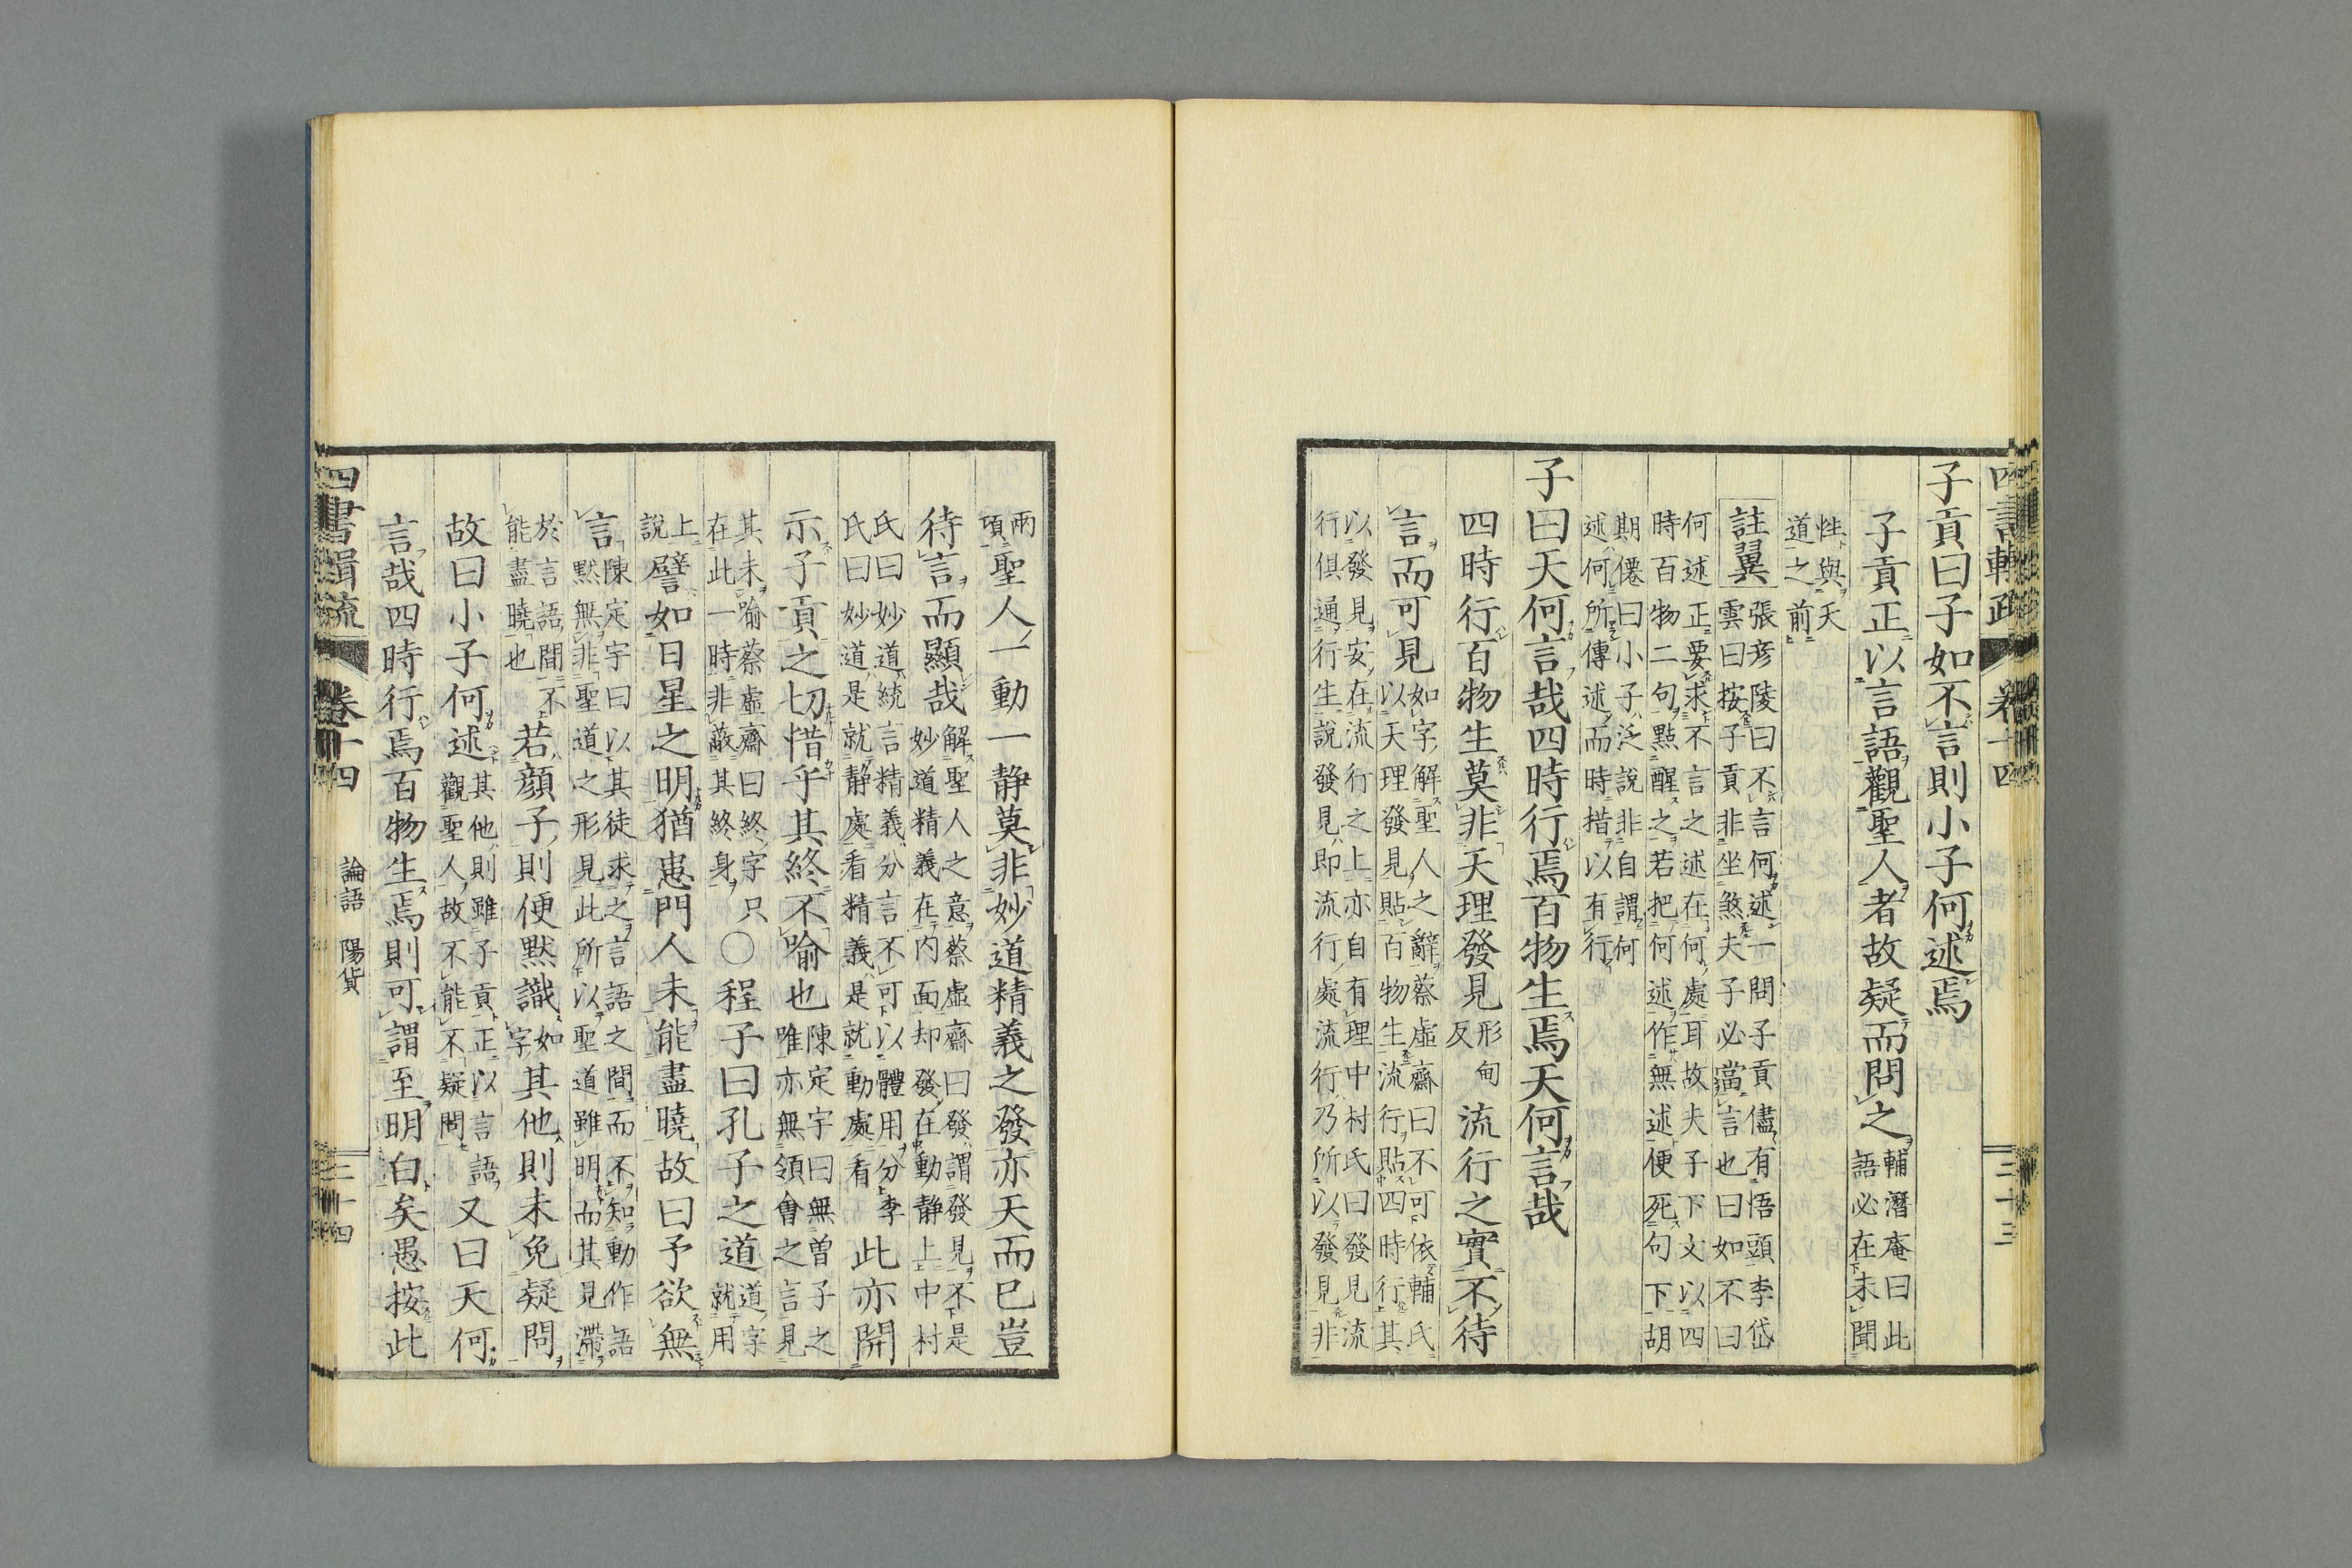 四書輯疏 卷十四 三十三
子貢曰子如不言則小子何述焉
子貢正以言語觀聖人者故疑而問之輔潛庵曰此語必在未聞
性與天道之前
註翼張彦陵曰不言何述一問子貢儘有悟頭李岱雲曰按子貢非坐煞夫子必當言也曰如不曰
何述正要求不言之述在何處耳故夫子下文以四時百物二句點醒之若把何述作無述便死句下胡
期僊曰小子泛說非自謂何述何所傳述而時措以有行
子曰天何言哉四時行焉百物生焉天何言哉
四時行百物生莫非天理發見形甸反流行之實不待
言而可見如字解聖人之辭蔡虛齋曰不可依輔氏以天理發見貼百物生流行貼四時行其
以發見安在流行之上亦自有理中村氏曰發見流行俱通行生說發見即流行處流行乃所以發見非
兩項聖人一動一静莫非妙道精義之發亦天而已豈
待言而顯哉解聖人之意蔡虛齋曰發謂發見不是妙道精義在内面却發在動静上中村
氏曰妙道統言精義分言不可以體用分李氏曰妙道是就静處看精義是就動處看此亦開
示子貢之切惜乎其終不喻也陳定宇曰無曽子之唯亦無領會之言見
其未喻蔡虛齋曰終字只在此一時非蔽其終身〇程子曰孔子之道道字就用
上說譬如日星之明猶患門人未能盡曉故曰予欲無
言陳定宇曰以其徒求之言語之間而不知動作語默無非聖道之形見此所以聖道雖明而其見滯
於言語間不能盡曉也若顔子則便默識如字其他則未免疑問
故曰小子何述其他則雖子貢正以言語觀聖人故不能不疑問又曰天何
言哉四時行焉百物生焉則可謂至明白矣愚按此
四書輯疏 卷十四 論語 陽貨 三十四